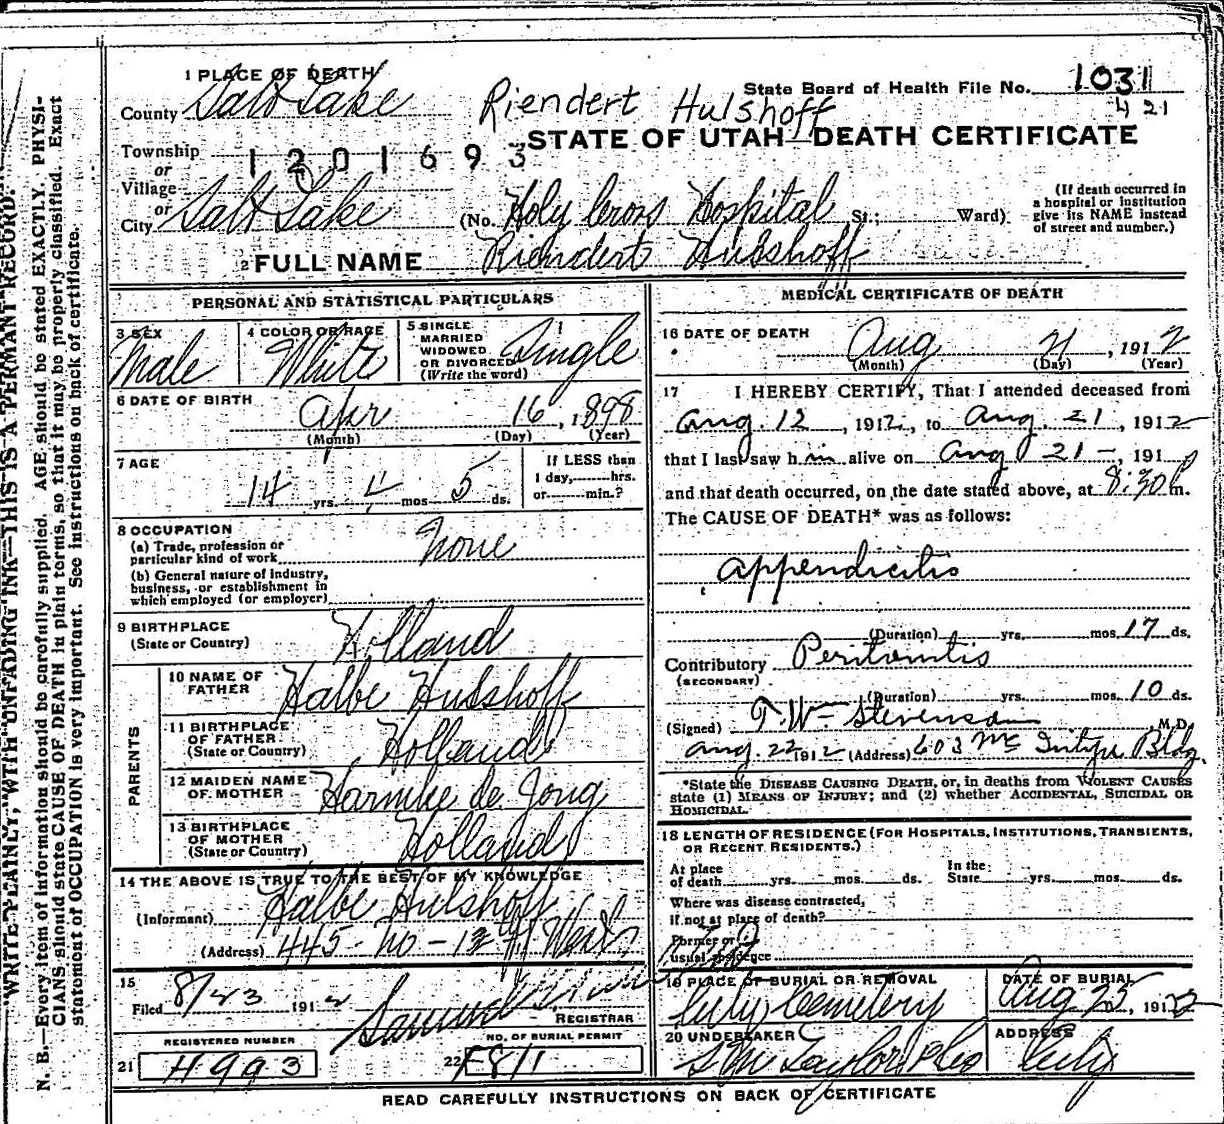 1 PLACE OF DEATH
State Board of Health File No. 1031
4 21
County Salt Lake
Riendert Hulshoff
STATE OF UTAH—DEATH CERTIFICATE
Township
1201693
or
Village
or
City Salt Lake (No. Holy Cross Hospital St.; Ward)
(If death occurred in a hospital or institution give its NAME instead of street and number.)
2 FULL NAME Riendert Hulshoff
PERSONAL AND STATISTICAL PARTICULARS
3 SEX Male
4 COLOR OR RACE White
5 SINGLE MARRIED WIDOWED OR DIVORCED (Write the word) Single
6 DATE OF BIRTH Apr 16, 1898
(Month) (Day) (Year)
7 AGE 14 yrs. 4 mos. 5 ds.
If LESS than 1 day, hrs. or min.?
8 OCCUPATION
(a) Trade, profession or particular kind of work None
(b) General nature of industry, business, or establishment in which employed (or employer)
9 BIRTHPLACE (State or Country) Holland
PARENTS
10 NAME OF FATHER Halbe Hulshoff
11 BIRTHPLACE OF FATHER (State or Country) Holland
12 MAIDEN NAME OF MOTHER Harmke de Jong
13 BIRTHPLACE OF MOTHER (State or Country) Holland
14 THE ABOVE IS TRUE TO THE BEST OF MY KNOWLEDGE
(Informant) Halbe Hulshoff
(Address) 445 - No - 13 West
15 Filed 8/23 1912 Samuel
REGISTRAR
REGISTERED NUMBER
21 H993
NO. OF BURIAL PERMIT
22 F811
MEDICAL CERTIFICATE OF DEATH
16 DATE OF DEATH Aug 21, 1912
(Month) (Day) (Year)
17 I HEREBY CERTIFY, That I attended deceased from
Aug. 12, 1912, to Aug. 21, 1912
that I last saw him alive on Aug 21 -, 191
and that death occurred, on the date stated above, at 8:30 P m.
The CAUSE OF DEATH* was as follows:
Appendicitis
(Duration) yrs. mos. 17 ds.
Contributory Peritonitis
(SECONDARY)
(Duration) yrs. mos. 10 ds.
(Signed) T. W. Stevenson M.D.
Aug. 22 1912 (Address) 603 McIntyre Bldg.
*State the DISEASE CAUSING DEATH, or, in deaths from VIOLENT CAUSES
state (1) MEANS OF INJURY; and (2) whether ACCIDENTAL, SUICIDAL OR
HOMICIDAL.
18 LENGTH OF RESIDENCE (FOR HOSPITALS, INSTITUTIONS, TRANSIENTS, OR RECENT RESIDENTS.)
At place of death yrs. mos. ds. In the State yrs. mos. ds.
Where was disease contracted,
if not at place of death?
Former or
usual residence
19 PLACE OF BURIAL OR REMOVAL City Cemetery
DATE OF BURIAL Aug 25, 1912
20 UNDERTAKER S M Taylor
ADDRESS City
READ CAREFULLY INSTRUCTIONS ON BACK OF CERTIFICATE
WRITE PLAINLY, WITH UNFADING INK—THIS IS A PERMANT RECORD.
N. B.—Every item of information should be carefully supplied. AGE should be stated EXACTLY. PHYSI-
CIANS should state CAUSE OF DEATH in plain terms, so that it may be properly classified. Exact
statement of OCCUPATION is very important. See instructions on back of certificate.